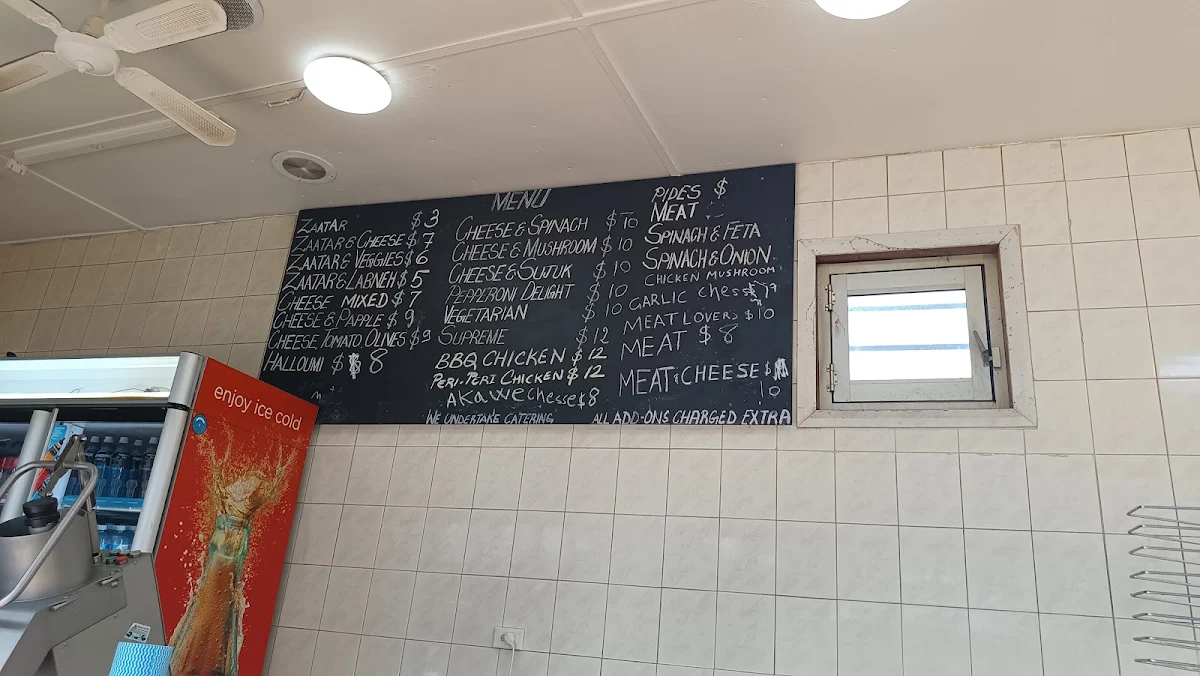 MENU
ZAATAR $3
ZAATAR & CHEESE $7
ZAATAR & VEGGIES $6
ZAATAR & LABNEH $5
CHEESE MIXED $7
CHEESE & P/APPLE $9
CHEESE TOMATO OLINES $9
HALLOUMI $ 8
CHEESE & SPINACH $10
CHEESE & MUSHROOM $10
CHEESE & SUJUK $10
PEPPERONI DELIGHT $10
VEGETARIAN $10
SUPREME $12
BBQ CHICKEN $12
PERI-PERI CHICKEN $12
AKAWE Chesse $8
WE UNDERTAKE CATERING
PIDES $
MEAT
SPINACH & FETA
SPINACH & ONION
CHICKEN MUSHROOM
GARLIC Chess
MEAT LOVERS $10
MEAT $8
MEAT & CHEESE $
10
ALL ADD-ONS CHARGED EXTRA
enjoy ice cold